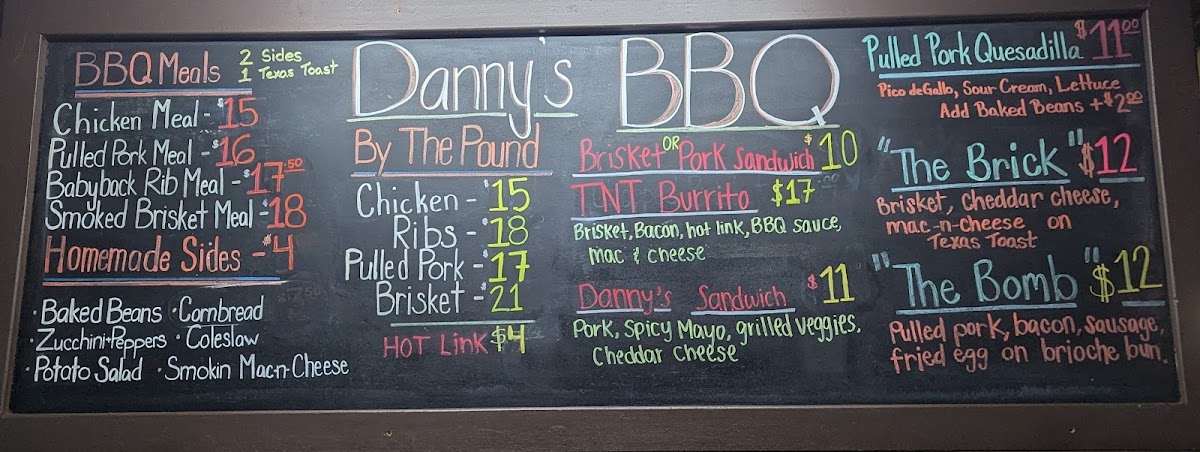 BBQ Meals
2 Sides
1 Texas Toast
Chicken Meal - $15
Pulled Pork Meal - $16
Babyback Rib Meal - $17.50
Smoked Brisket Meal - $18
Homemade Sides - $4
· Baked Beans · Cornbread
· Zucchini+Peppers · Coleslaw
· Potato Salad · Smokin Mac-n-Cheese
Danny's BBQ
By The Pound
Chicken - $15
Ribs - $18
Pulled Pork - $17
Brisket - $21
HOT LINK $4
Brisket OR Pork Sandwich $10
TNT Burrito $17
Brisket, Bacon, hot link, BBQ sauce,
mac & cheese
Danny's Sandwich $11
Pork, Spicy Mayo, grilled veggies,
Cheddar Cheese
Pulled Pork Quesadilla $11.00
Pico de Gallo, Sour Cream, Lettuce
Add Baked Beans + $2.00
"The Brick" $12
Brisket, Cheddar cheese,
mac-n-cheese on
Texas Toast
"The Bomb" $12
Pulled pork, bacon, sausage,
fried egg on brioche bun.